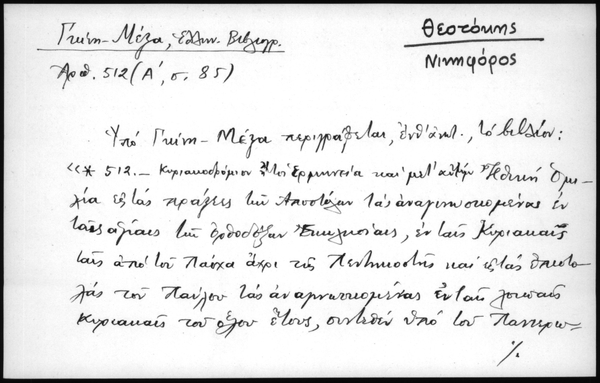 Γκίνη-Μέξα, Ἑλλην. Βιβλιογρ.
Ἀριθ. 512 (Α', σ. 85)
Θεοτόκης
Νικηφόρος
Ὑπό Γκίνη-Μέξα περιγράφεται, ἐνθ' ἀνωτ., τό βιβλίον:
«* 512.- Κυριακοδρόμιον ἤτοι Ἑρμηνεία καί μετ' αὐτήν Ἠθική Ὁμι-
λία εἰς τάς πράξεις τῶν Ἀποστόλων τάς ἀναγινωσκομένας ἐν
ταῖς ἁγίαις τῶν ὀρθοδόξων Ἐκκλησίαις, ἐν ταῖς Κυριακαῖς
ταῖς ἀπό τοῦ Πάσχα ἄχρι τῆς Πεντηκοστῆς καί εἰς τάς ἐπιστο-
λάς τοῦ Παύλου τάς ἀναγινωσκομένας ἐν ταῖς λοιπαῖς
Κυριακαῖς τοῦ ὅλου ἔτους, συντεθέν ὑπό τοῦ Πανιερω-
./.